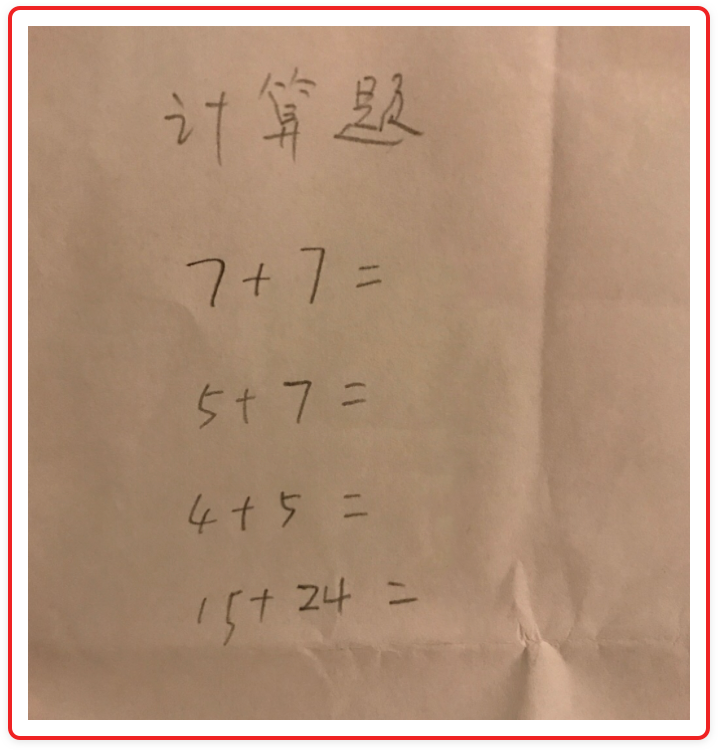 计算题
7+7=
5+7=
4+5=
15+24=